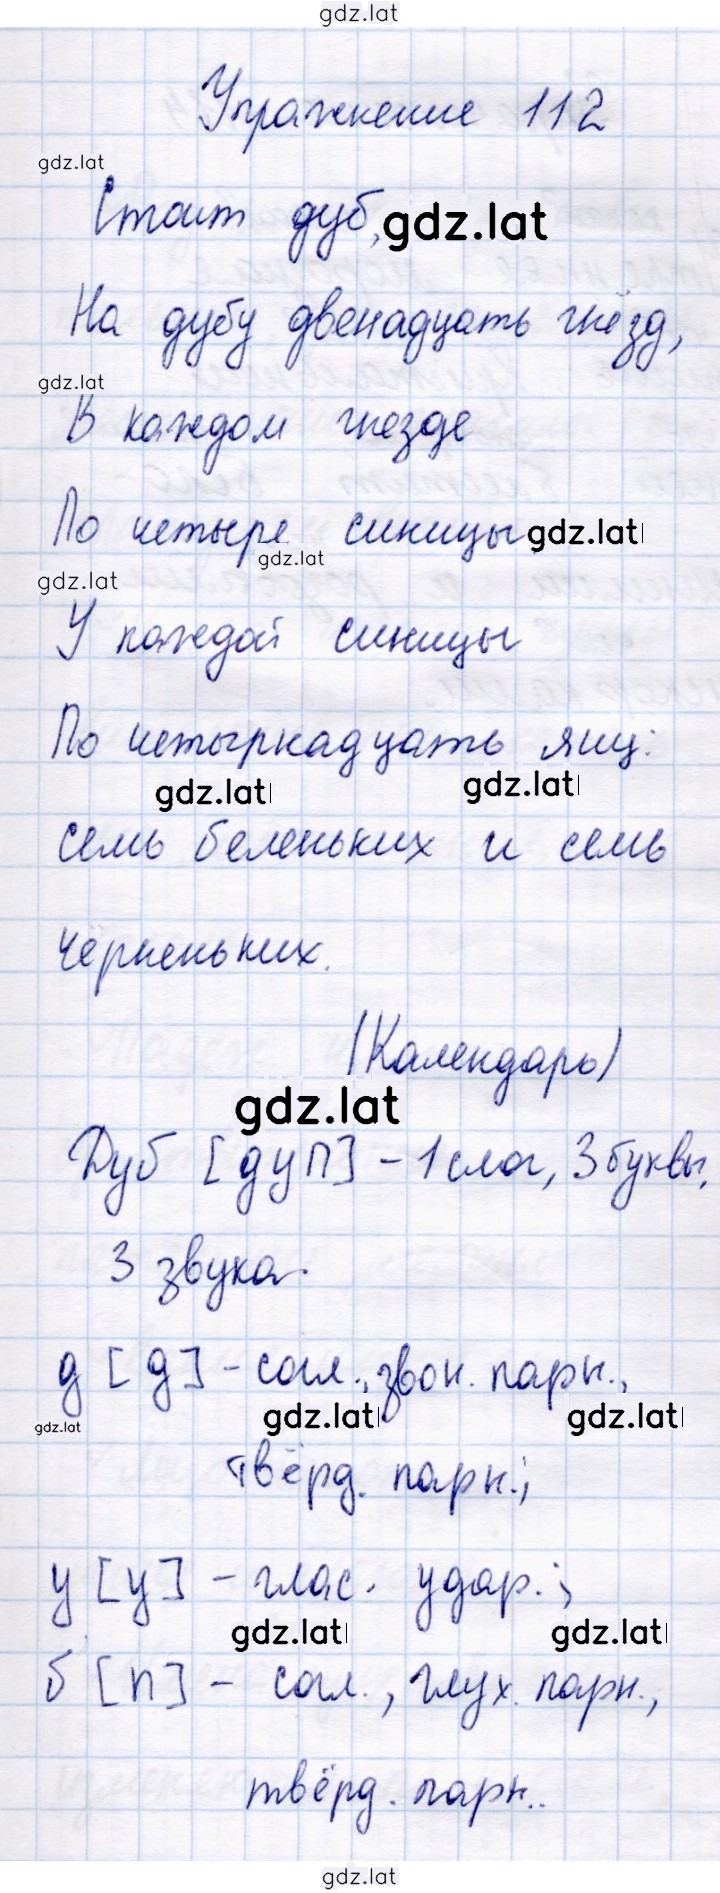 gdz.lat
Упражнение 112
gdz.lat
Стоит дуб, gdz.lat
На дубу двенадцать гнёзд,
gdz.lat
В каждом гнезде
По четыре синицы gdz.lat
gdz.lat
gdz.lat
У каждой синицы
По четырнадцать яиц:
gdz.lat gdz.lat
семь беленьких и семь
чёрненьких.
(Календарь)
gdz.lat
Дуб [дуп] – 1 слог, 3 буквы,
3 звука.
д [д] – согл., звон. парн.,
gdz.lat gdz.lat gdz.lat
твёрд. парн.;
у [у] – глас. удар.;
gdz.lat gdz.lat
б [п] – согл., глух. парн.,
твёрд. парн..
gdz.lat